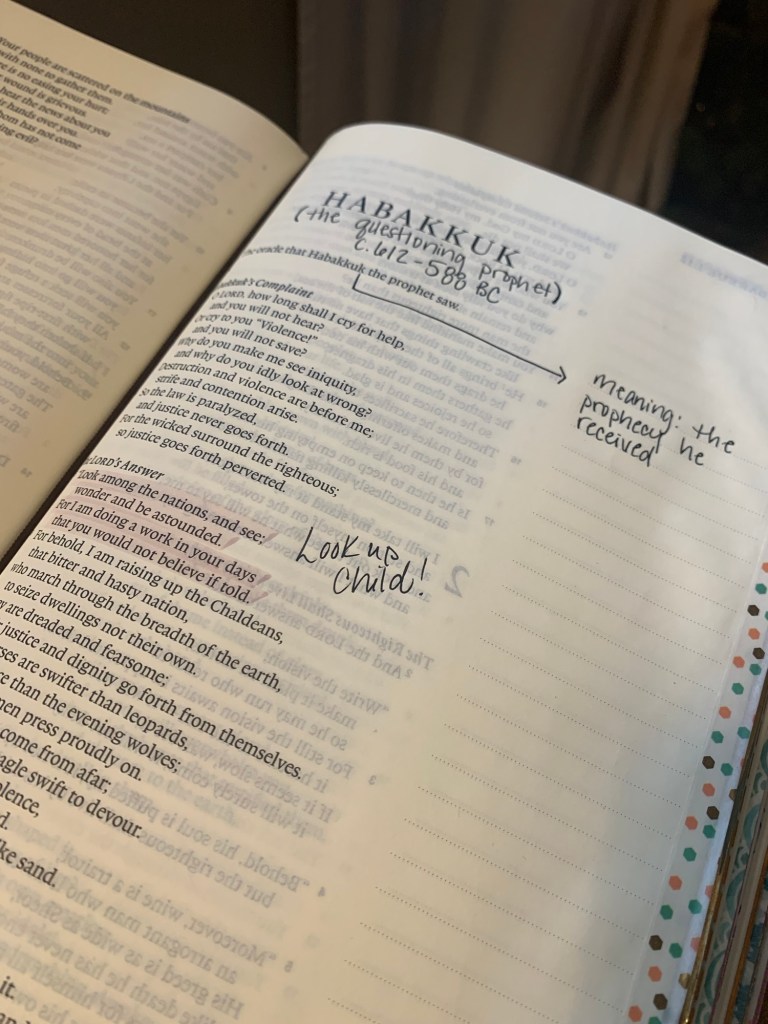 Your people are scattered on the mountains
with none to gather them.
is no easing your hurt;
wound is grievous.
hear the news about you
hands over you.
has not come
evil?
HABAKKUK
(the questioning prophet)
c. 612-588 BC
oracle that Habakkuk the prophet saw.
meaning: the
prophecy he
received
Complaint
O LORD, how long shall I cry for help,
and you will not hear?
Or cry to you "Violence!"
and you will not save?
Why do you make me see iniquity,
and why do you idly look at wrong?
Destruction and violence are before me;
strife and contention arise.
So the law is paralyzed,
and justice never goes forth.
For the wicked surround the righteous;
so justice goes forth perverted.
LORD'S Answer
Look among the nations, and see;
wonder and be astounded.
For I am doing a work in your days
that you would not believe if told.
Look up
child!
For behold, I am raising up the Chaldeans,
that bitter and hasty nation,
who march through the breadth of the earth,
to seize dwellings not their own.
are dreaded and fearsome;
justice and dignity go forth from themselves.
are swifter than leopards,
than the evening wolves;
press proudly on.
come from afar;
swift to devour.
sand.
it.